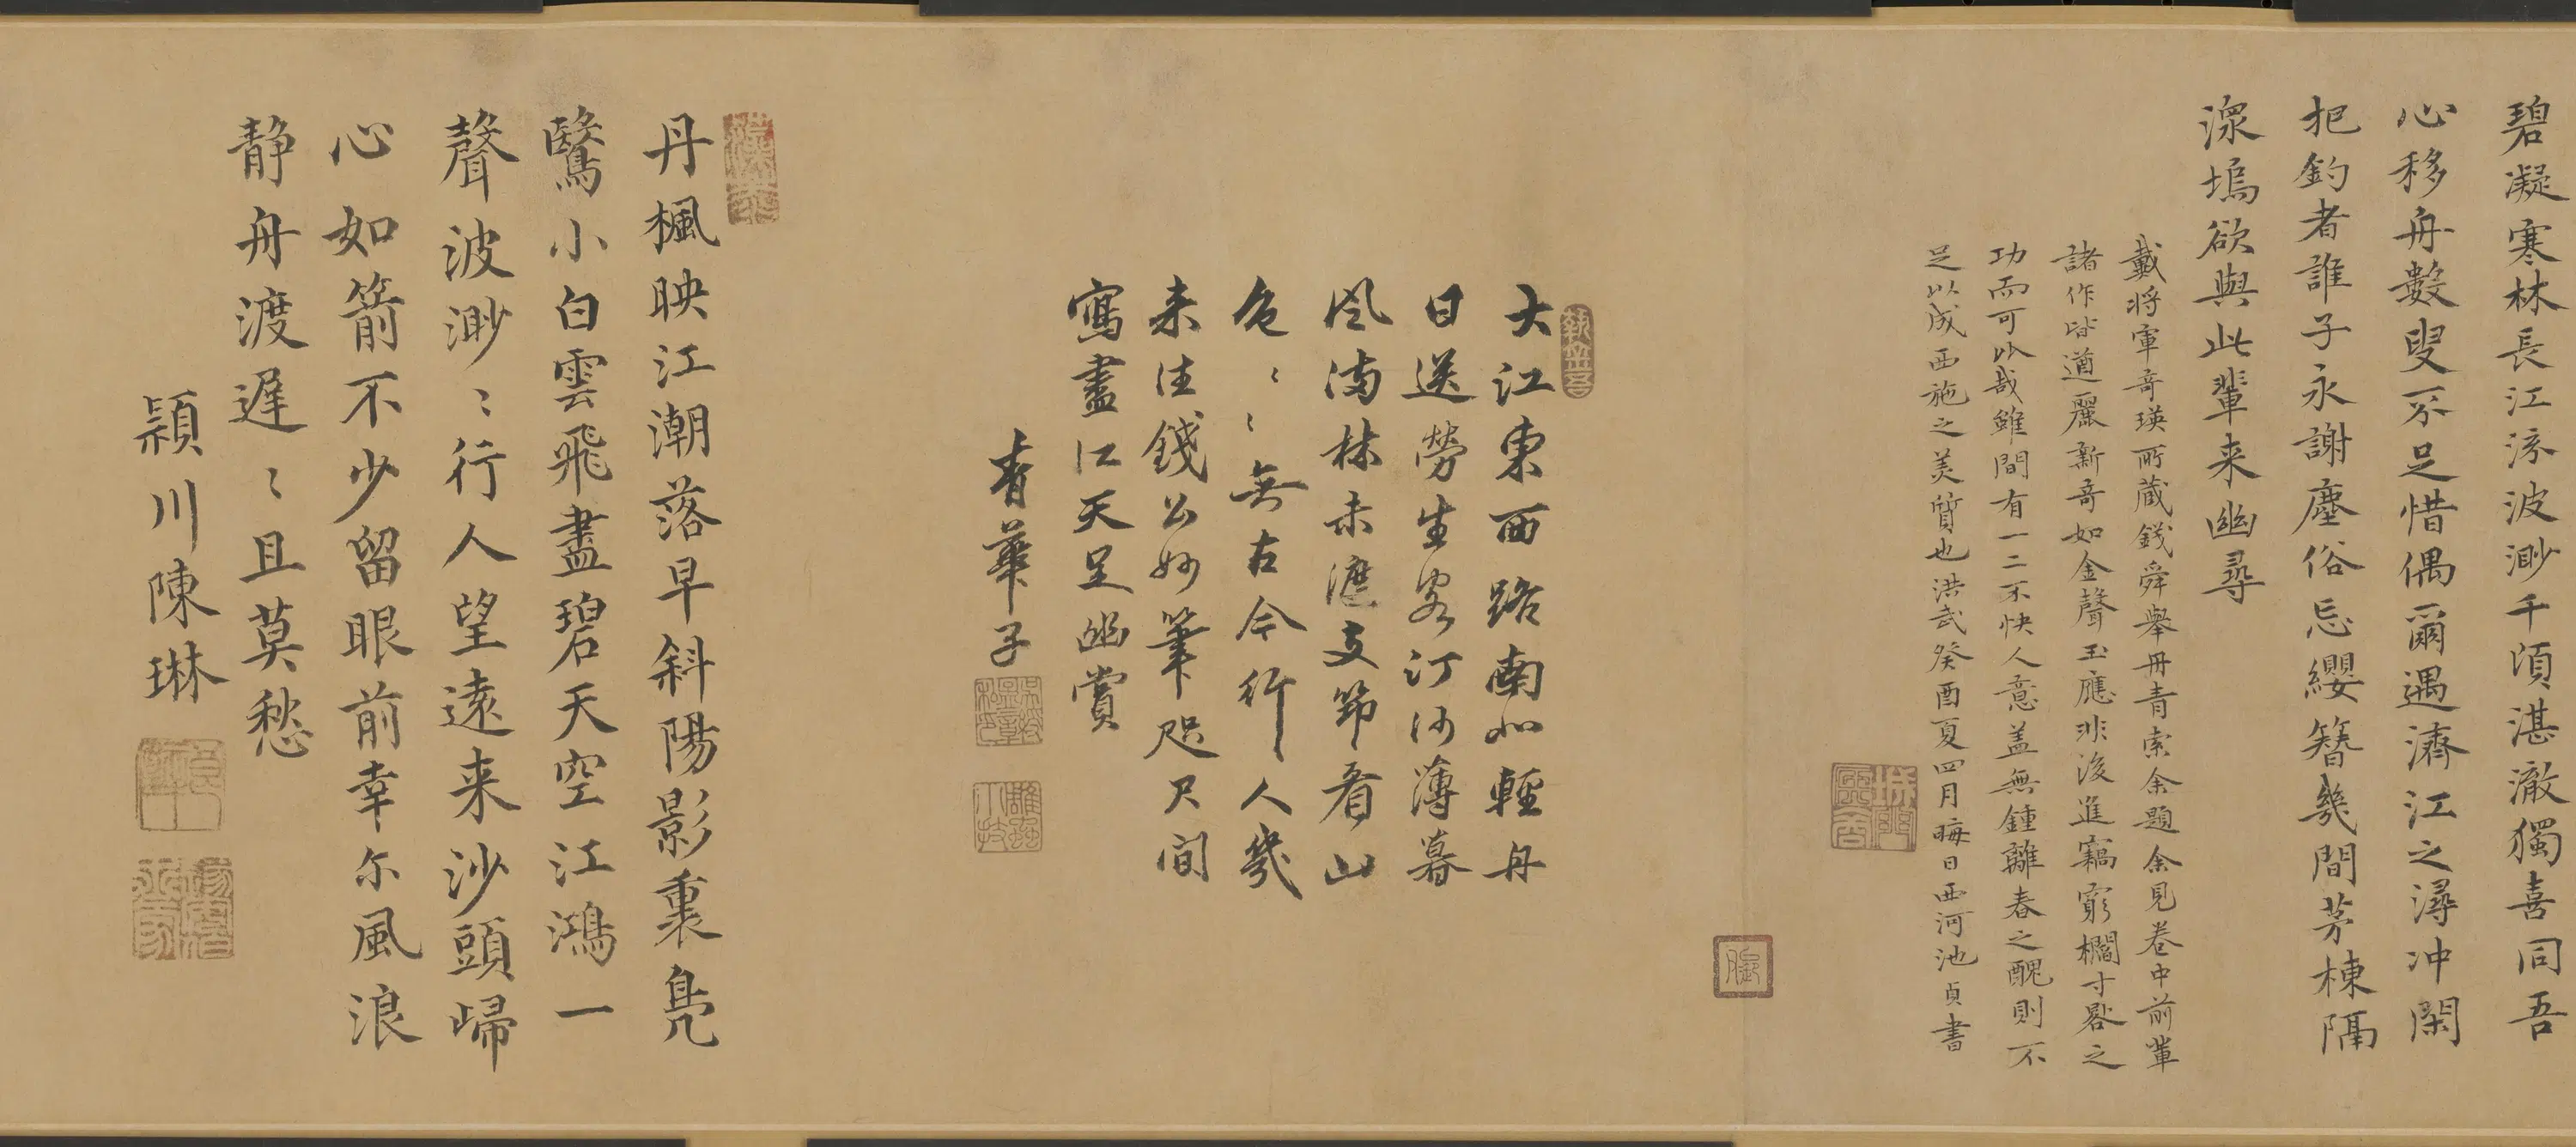 碧凝寒林長江流波渺千頃湛澈獨喜同吾
心移舟數叟不足惜偶爾遇濟江之潯冲閑
把釣者誰子永謝塵俗忘纓簪幾間茅棟隔
深塢欲與此輩来幽尋
戴將軍竒瑛所蔵錢舜舉丹青索余題余見卷中前輩
諸作皆遒麗新竒如金聲玉應非後進竊窮櫩寸晷之
功而可以哉雖間有一二不快人意盖無鍾離春之醜則不
足以成西施之美質也洪武癸酉夏四月晦日西河池貞書
大江東西路南北輕舟
日送勞生客汀沙薄暮
風滿林未遮支笻看山
色〻〻無古今行人幾
来往錢公妙筆咫尺間
寫盡江天足幽賞
青華子
丹楓映江潮落早斜陽影裏鳧
鷖小白雲飛盡碧天空江鴻一
聲波渺〻行人望遠来沙頭歸
心如箭不少留眼前幸尔風浪
静舟渡遲〻且莫愁
潁川陳琳